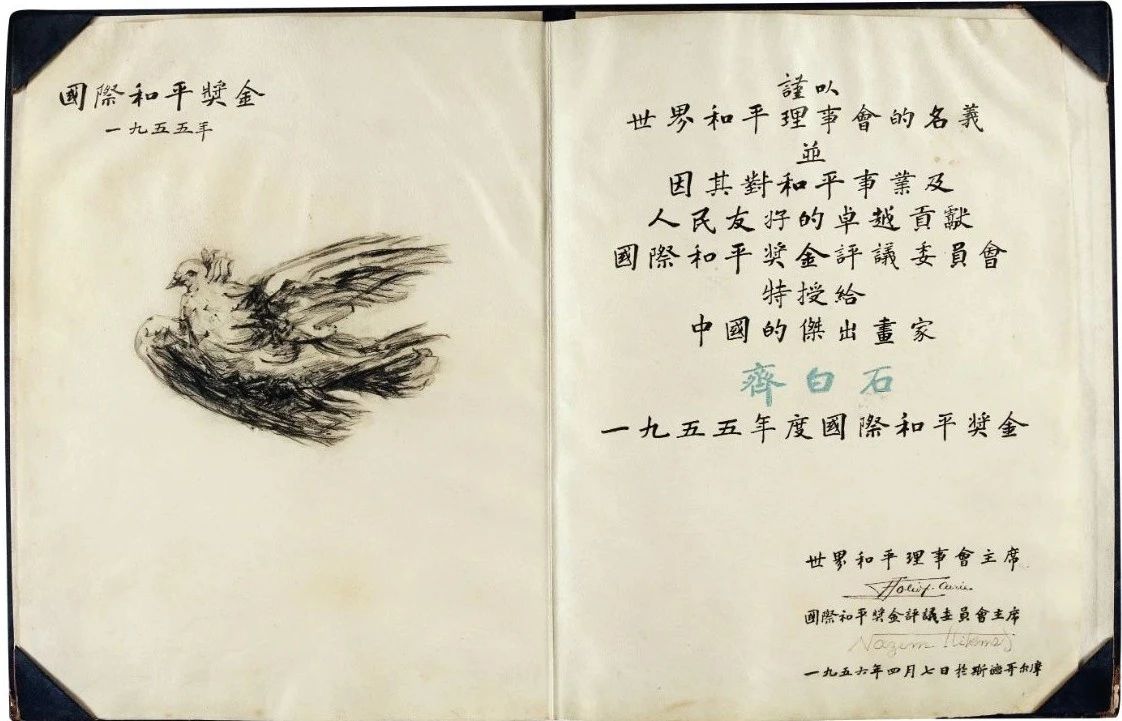 國際和平獎金
一九五五年
謹以
世界和平理事會的名義
並
因其對和平事業及
人民友好的卓越貢獻
國際和平獎金評議委員會
特授給
中國的傑出畫家
齊白石
一九五五年度國際和平獎金
世界和平理事會主席
Joliot-Curie
國際和平獎金評議委員會主席
Nazim Hikmet
一九五六年四月七日於斯德哥尔摩